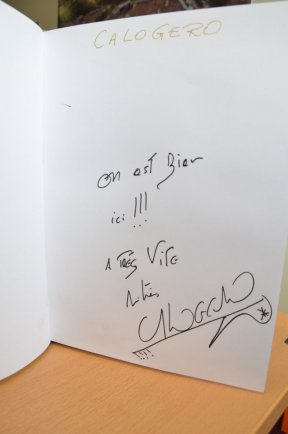 CALOGERO
On est Bien
ici !!!
A TRÈS VITE
Amitiés
CALOGERO